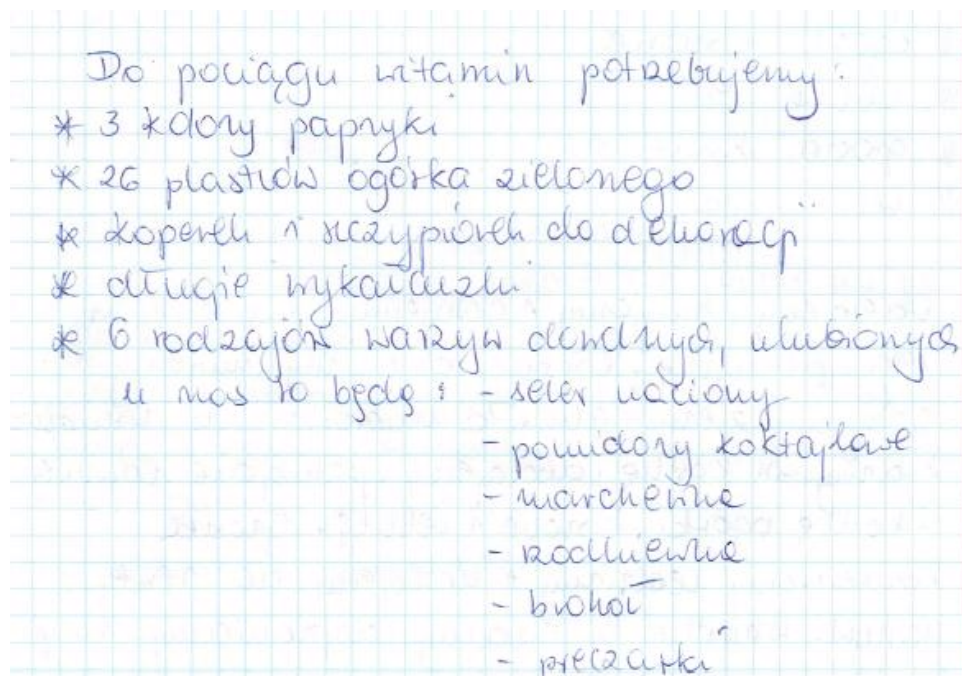 Do pociągu witamin potrzebujemy:
* 3 kolory papryki
* 26 plastrów ogórka zielonego
* koperek i szczypiorek do dekoracji
* długie wykałaczki
* 6 rodzajów warzyw dowolnych, ulubionych
u nas to będą: - seler naciowy
- pomidory koktajlowe
- marchewka
- rzodkiewka
- brokoł
- pieczarki